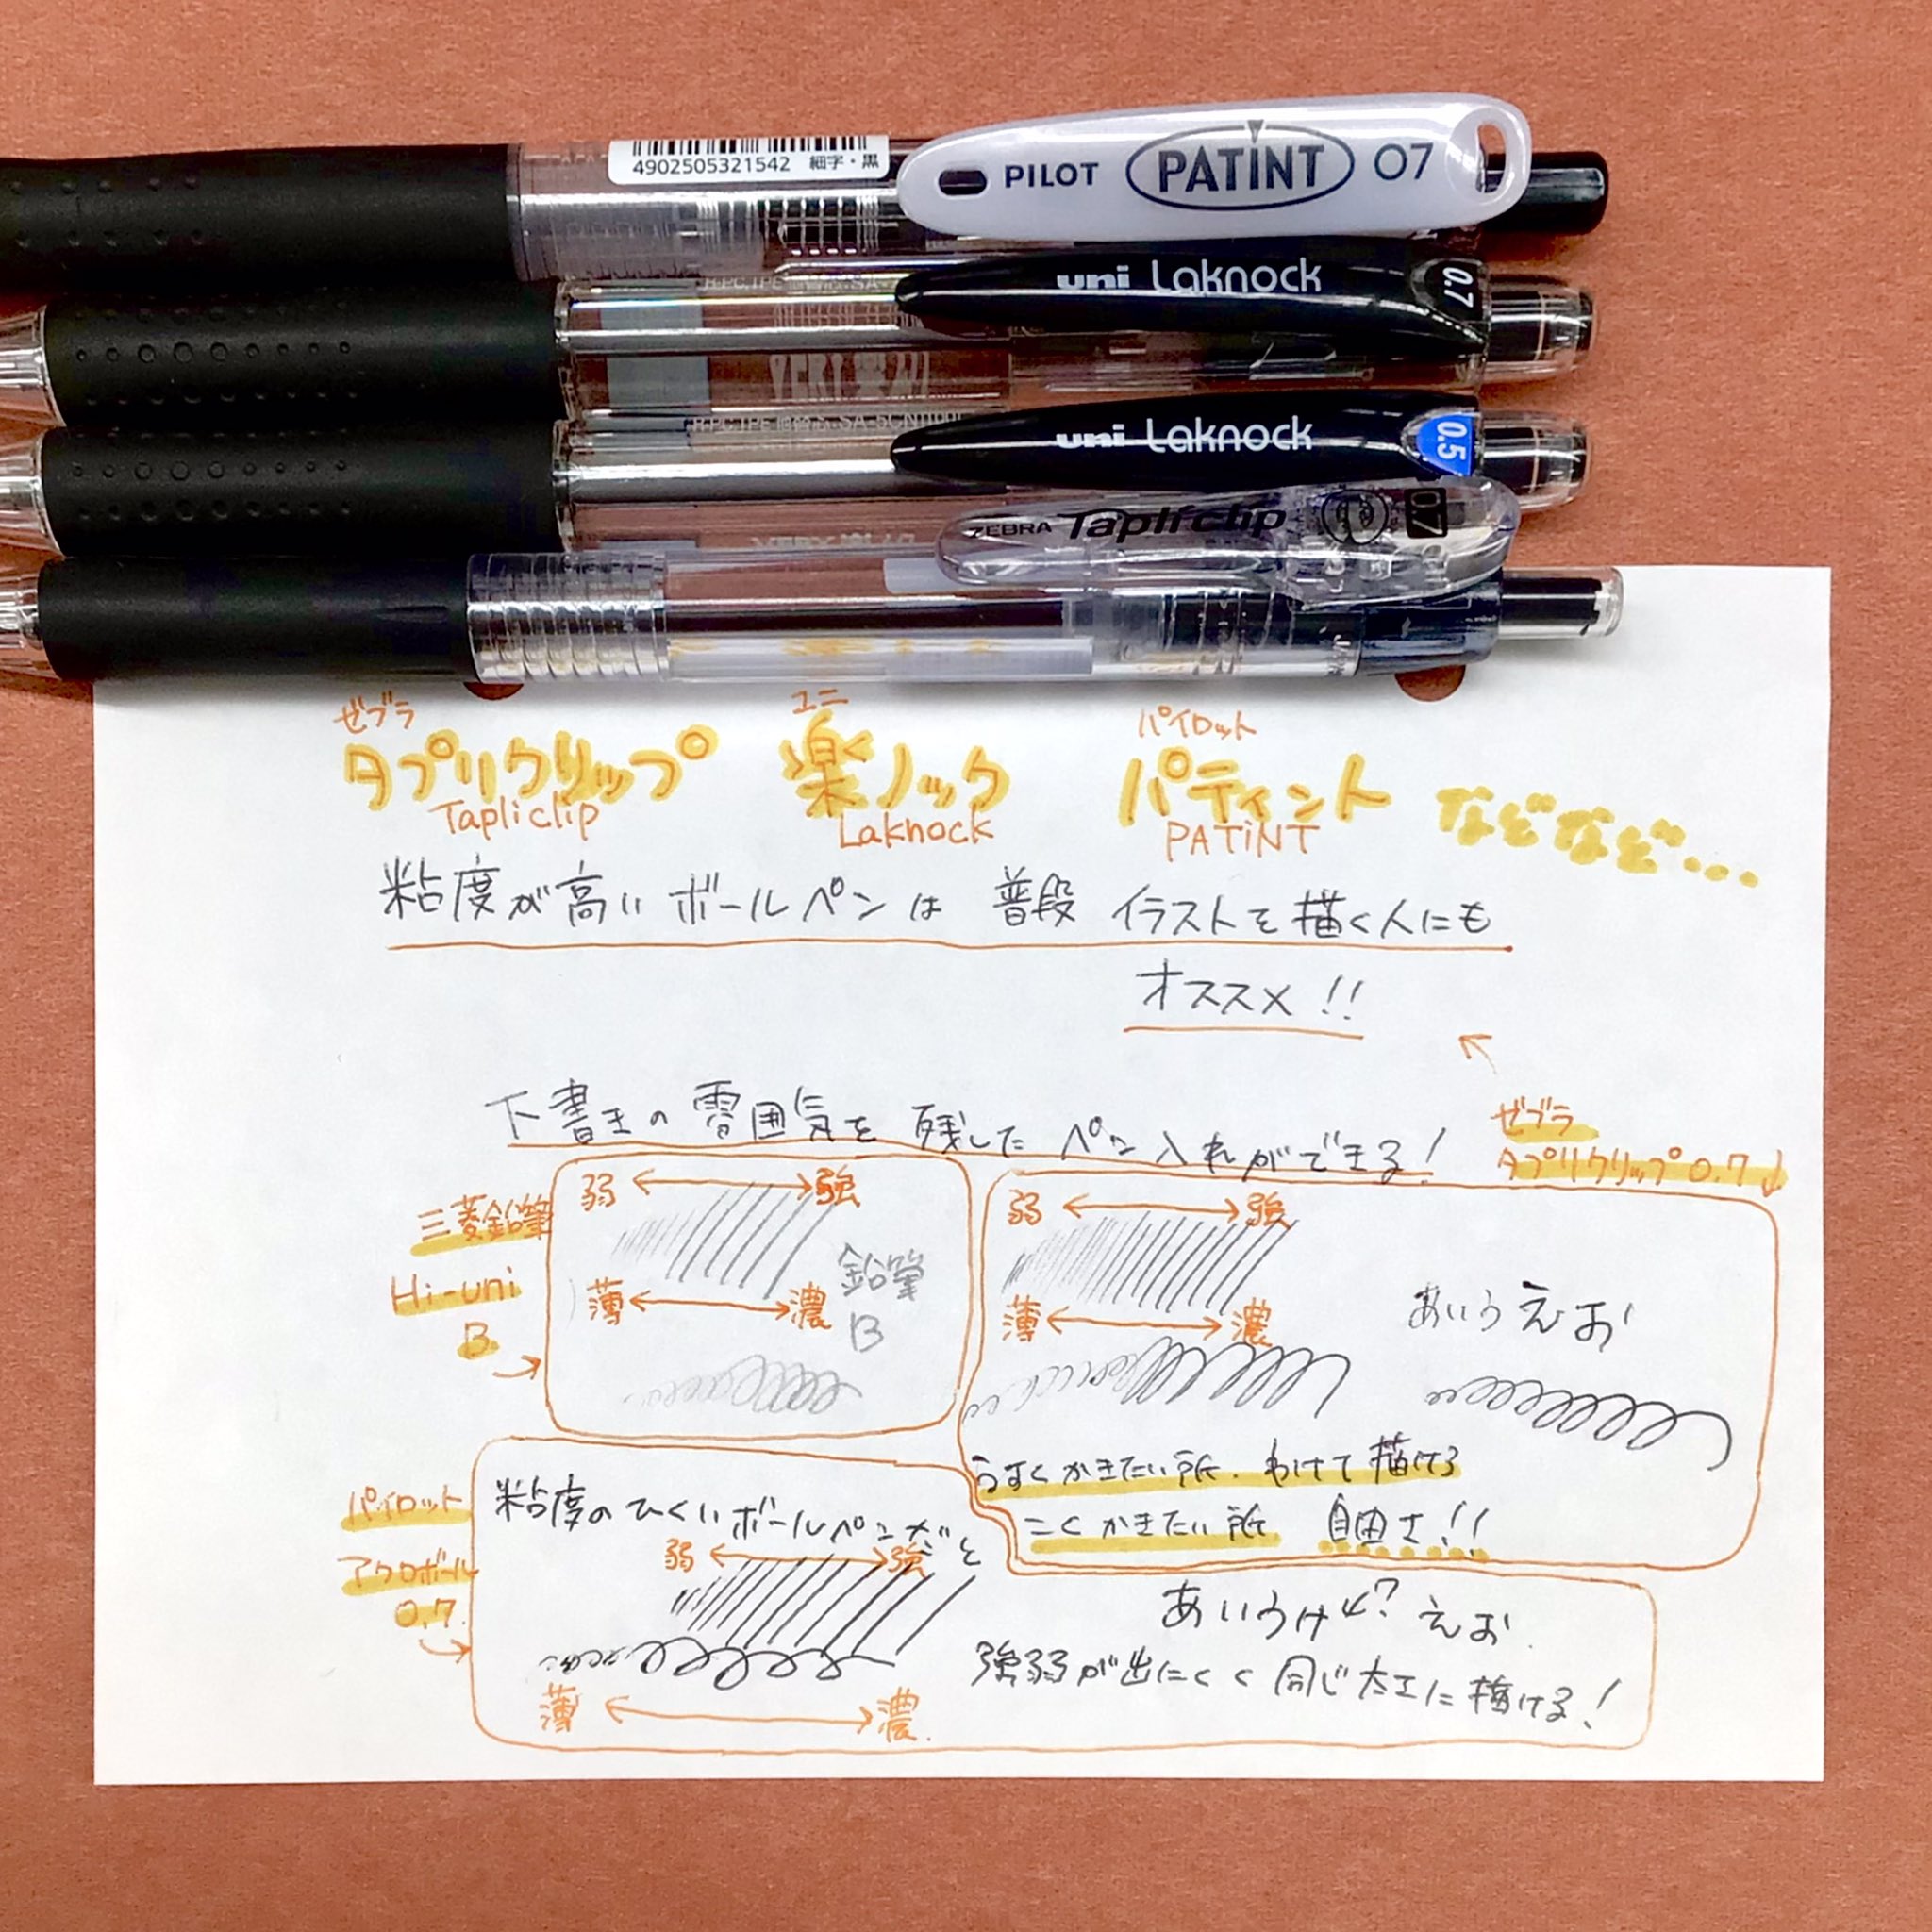 4902505321542 細字・黒
PILOT PATINT 07
uni Laknock 0.7
uni Laknock 0.5
ZEBRA Tapliclip 0.7
ゼブラ ユニ パイロット
タプリクリップ 楽ノック パティント などなど…
Tapliclip Laknock PATiNT
粘度が高いボールペンは 普段 イラストを描く人にも
オススメ!!
下書きの雰囲気を残したペン入れができる!
ゼブラ
タプリクリップ0.7↓
三菱鉛筆
Hi-uni
B
弱 ↔ 強
薄 ↔ 濃
鉛筆
B
弱 ↔ 強
薄 ↔ 濃
あいうえお
うすくかきたい所. わけて描ける
こくかきたい所 自由さ!!
パイロット
アクロボール
0.7
粘度のひくいボールペンだと
弱 ↔ 強
薄 ↔ 濃.
あいうけ ? えお
強弱が出にくく同じ太さに描ける!